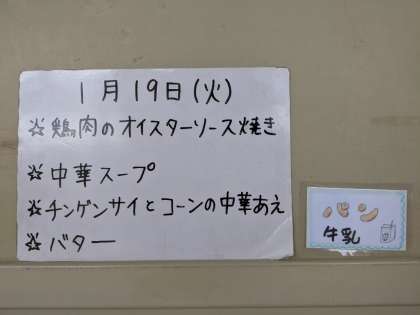 1月19日(火)
☆鶏肉のオイスターソース焼き
☆中華スープ
☆チンゲンサイとコーンの中華あえ
☆バター
パン
牛乳